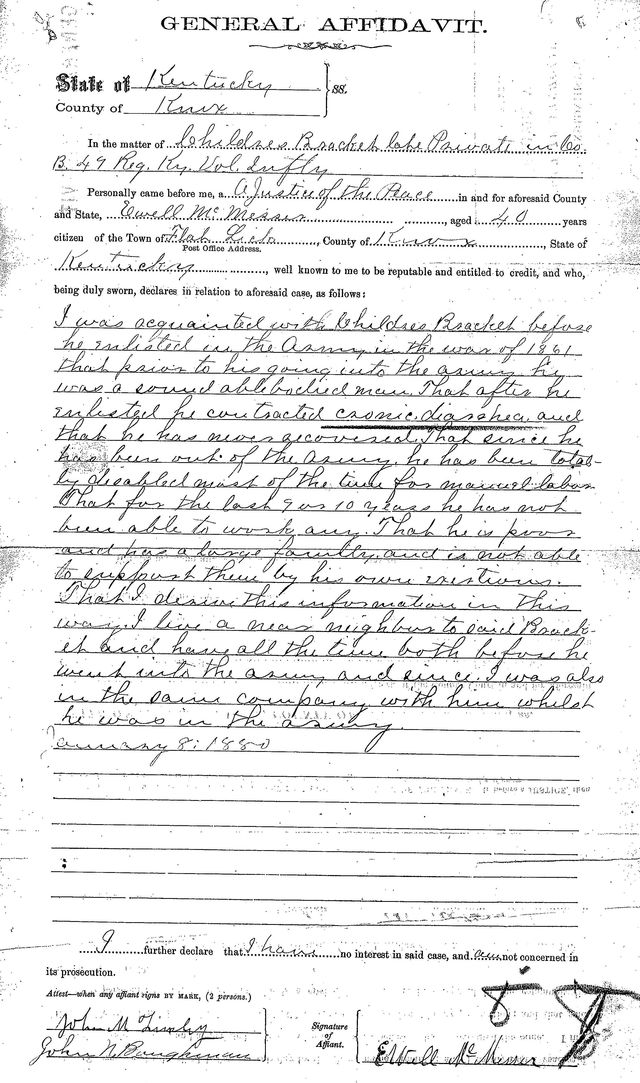 GENERAL AFFIDAVIT.
State of Kentucky
ss.
County of Knox
In the matter of Childres Bracket late Private in Co.
B. 49 Reg. Ky. Vol. Infty
Personally came before me, a A Justice of the Peace in and for aforesaid County
and State, Ewell Mc Messer, aged 40 years
citizen of the Town of Flat Lick, County of Knox, State of
Post Office Address.
Kentucky, well known to me to be reputable and entitled to credit, and who,
being duly sworn, declares in relation to aforesaid case, as follows:
I was acquainted with Childres Bracket before
he enlisted in the Army in the war of 1861
that prior to his going into the army he
was a sound ablebodied man. That after he
enlisted he contracted cronic diarrhea and
that he has never recovered. That since he
has been out of the Army he has been total-
ly disabled most of the time for manuel labor
That for the last 9 or 10 years he has not
been able to work any. That he is poor
and has a large family and is not able
to support them by his own exertions.
That I derive this information in this
way. I live a near neighbor to said Brack-
et and have all the time both before he
went into the army and since. I was also
in the same company with him whilst
he was in the army.
January 8: 1880
I further declare that I have no interest in said case, and am not concerned in
its prosecution.
Attest—when any affiant signs BY MARK, (2 persons.)
John M
John N Baughman
Signature
of
Affiant.
Ewell Mc Messer